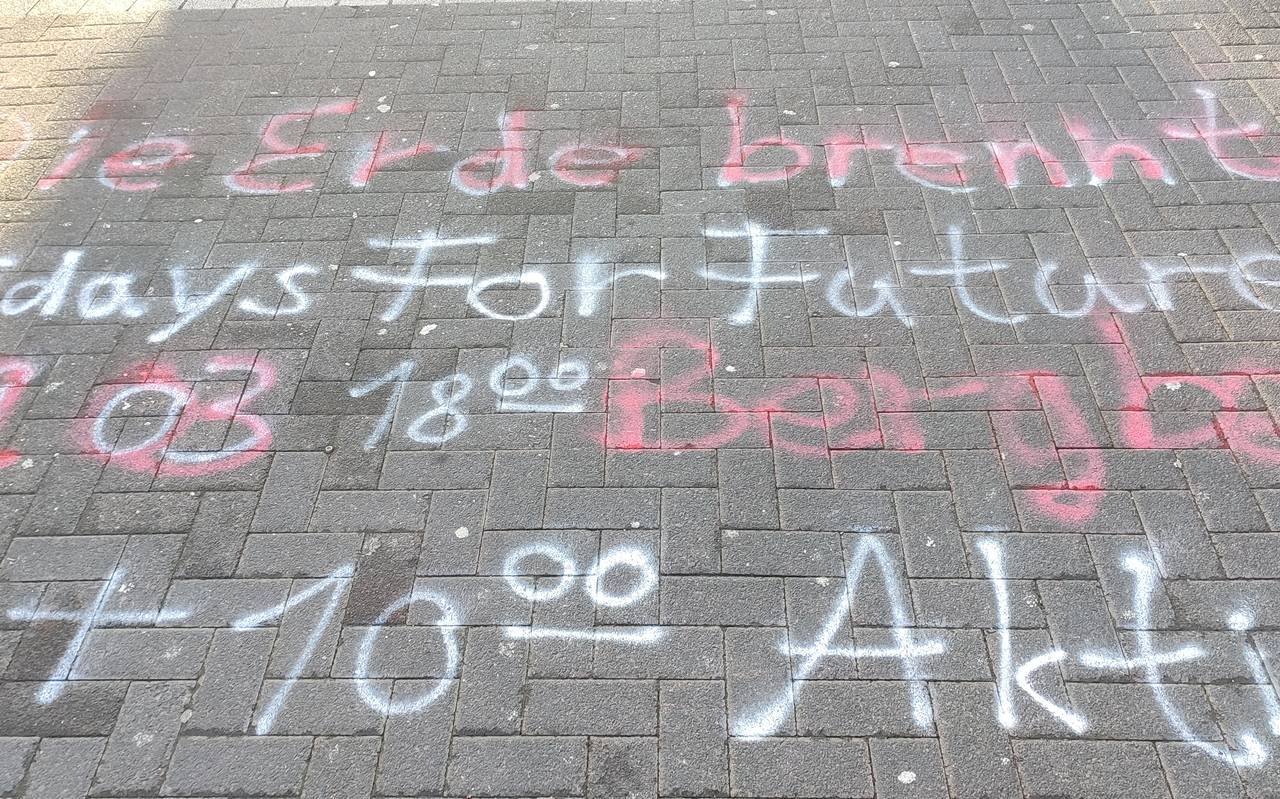 Die Erde brennt
idays For Future
03 18⁰⁰ Bergb
+ 10⁰⁰ Akti